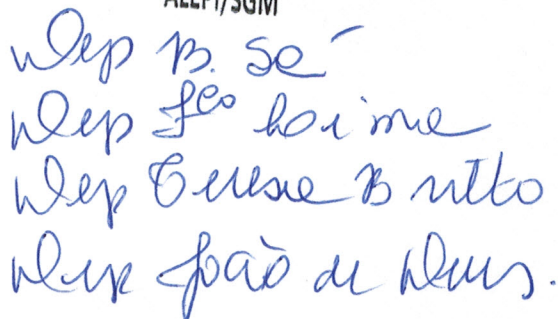 ALEPI/SGM
Dep B. Sá
Dep Fco Loime
Dep Teresa Britto
Dep João de Deus.